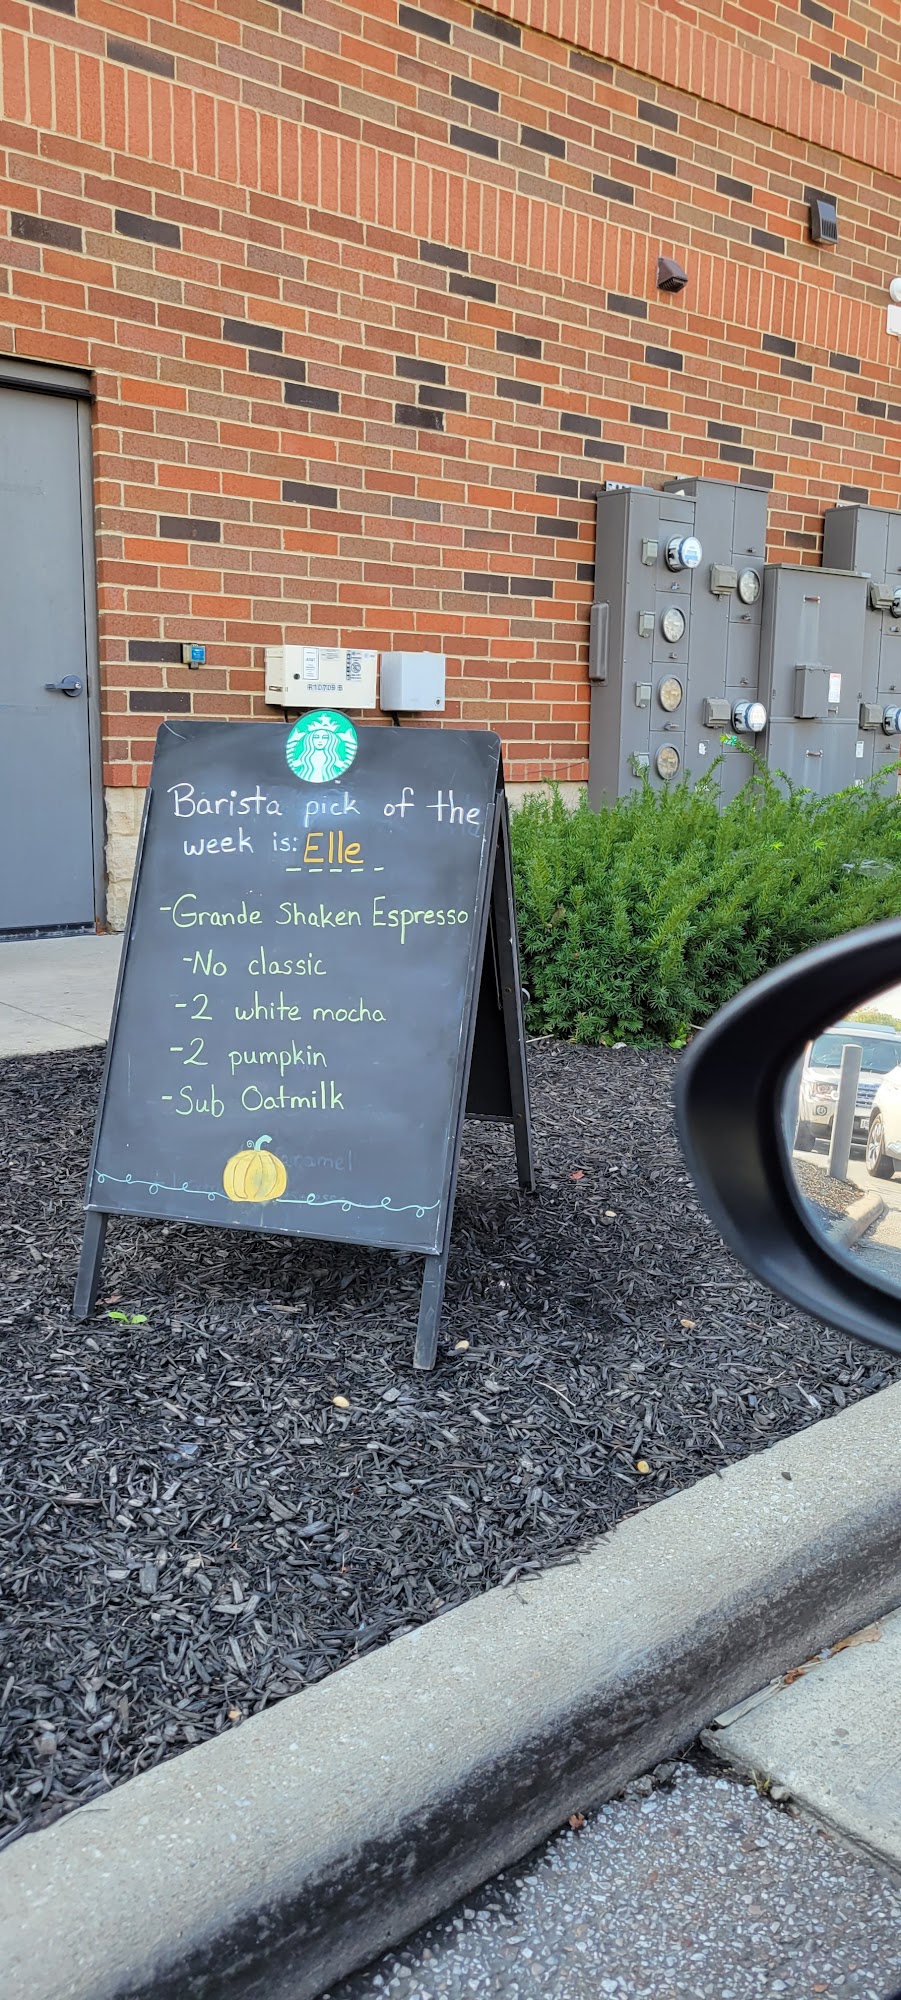 Barista pick of the
week is: Elle
-Grande Shaken Espresso
-No classic
-2 white mocha
-2 pumpkin
-Sub Oatmilk